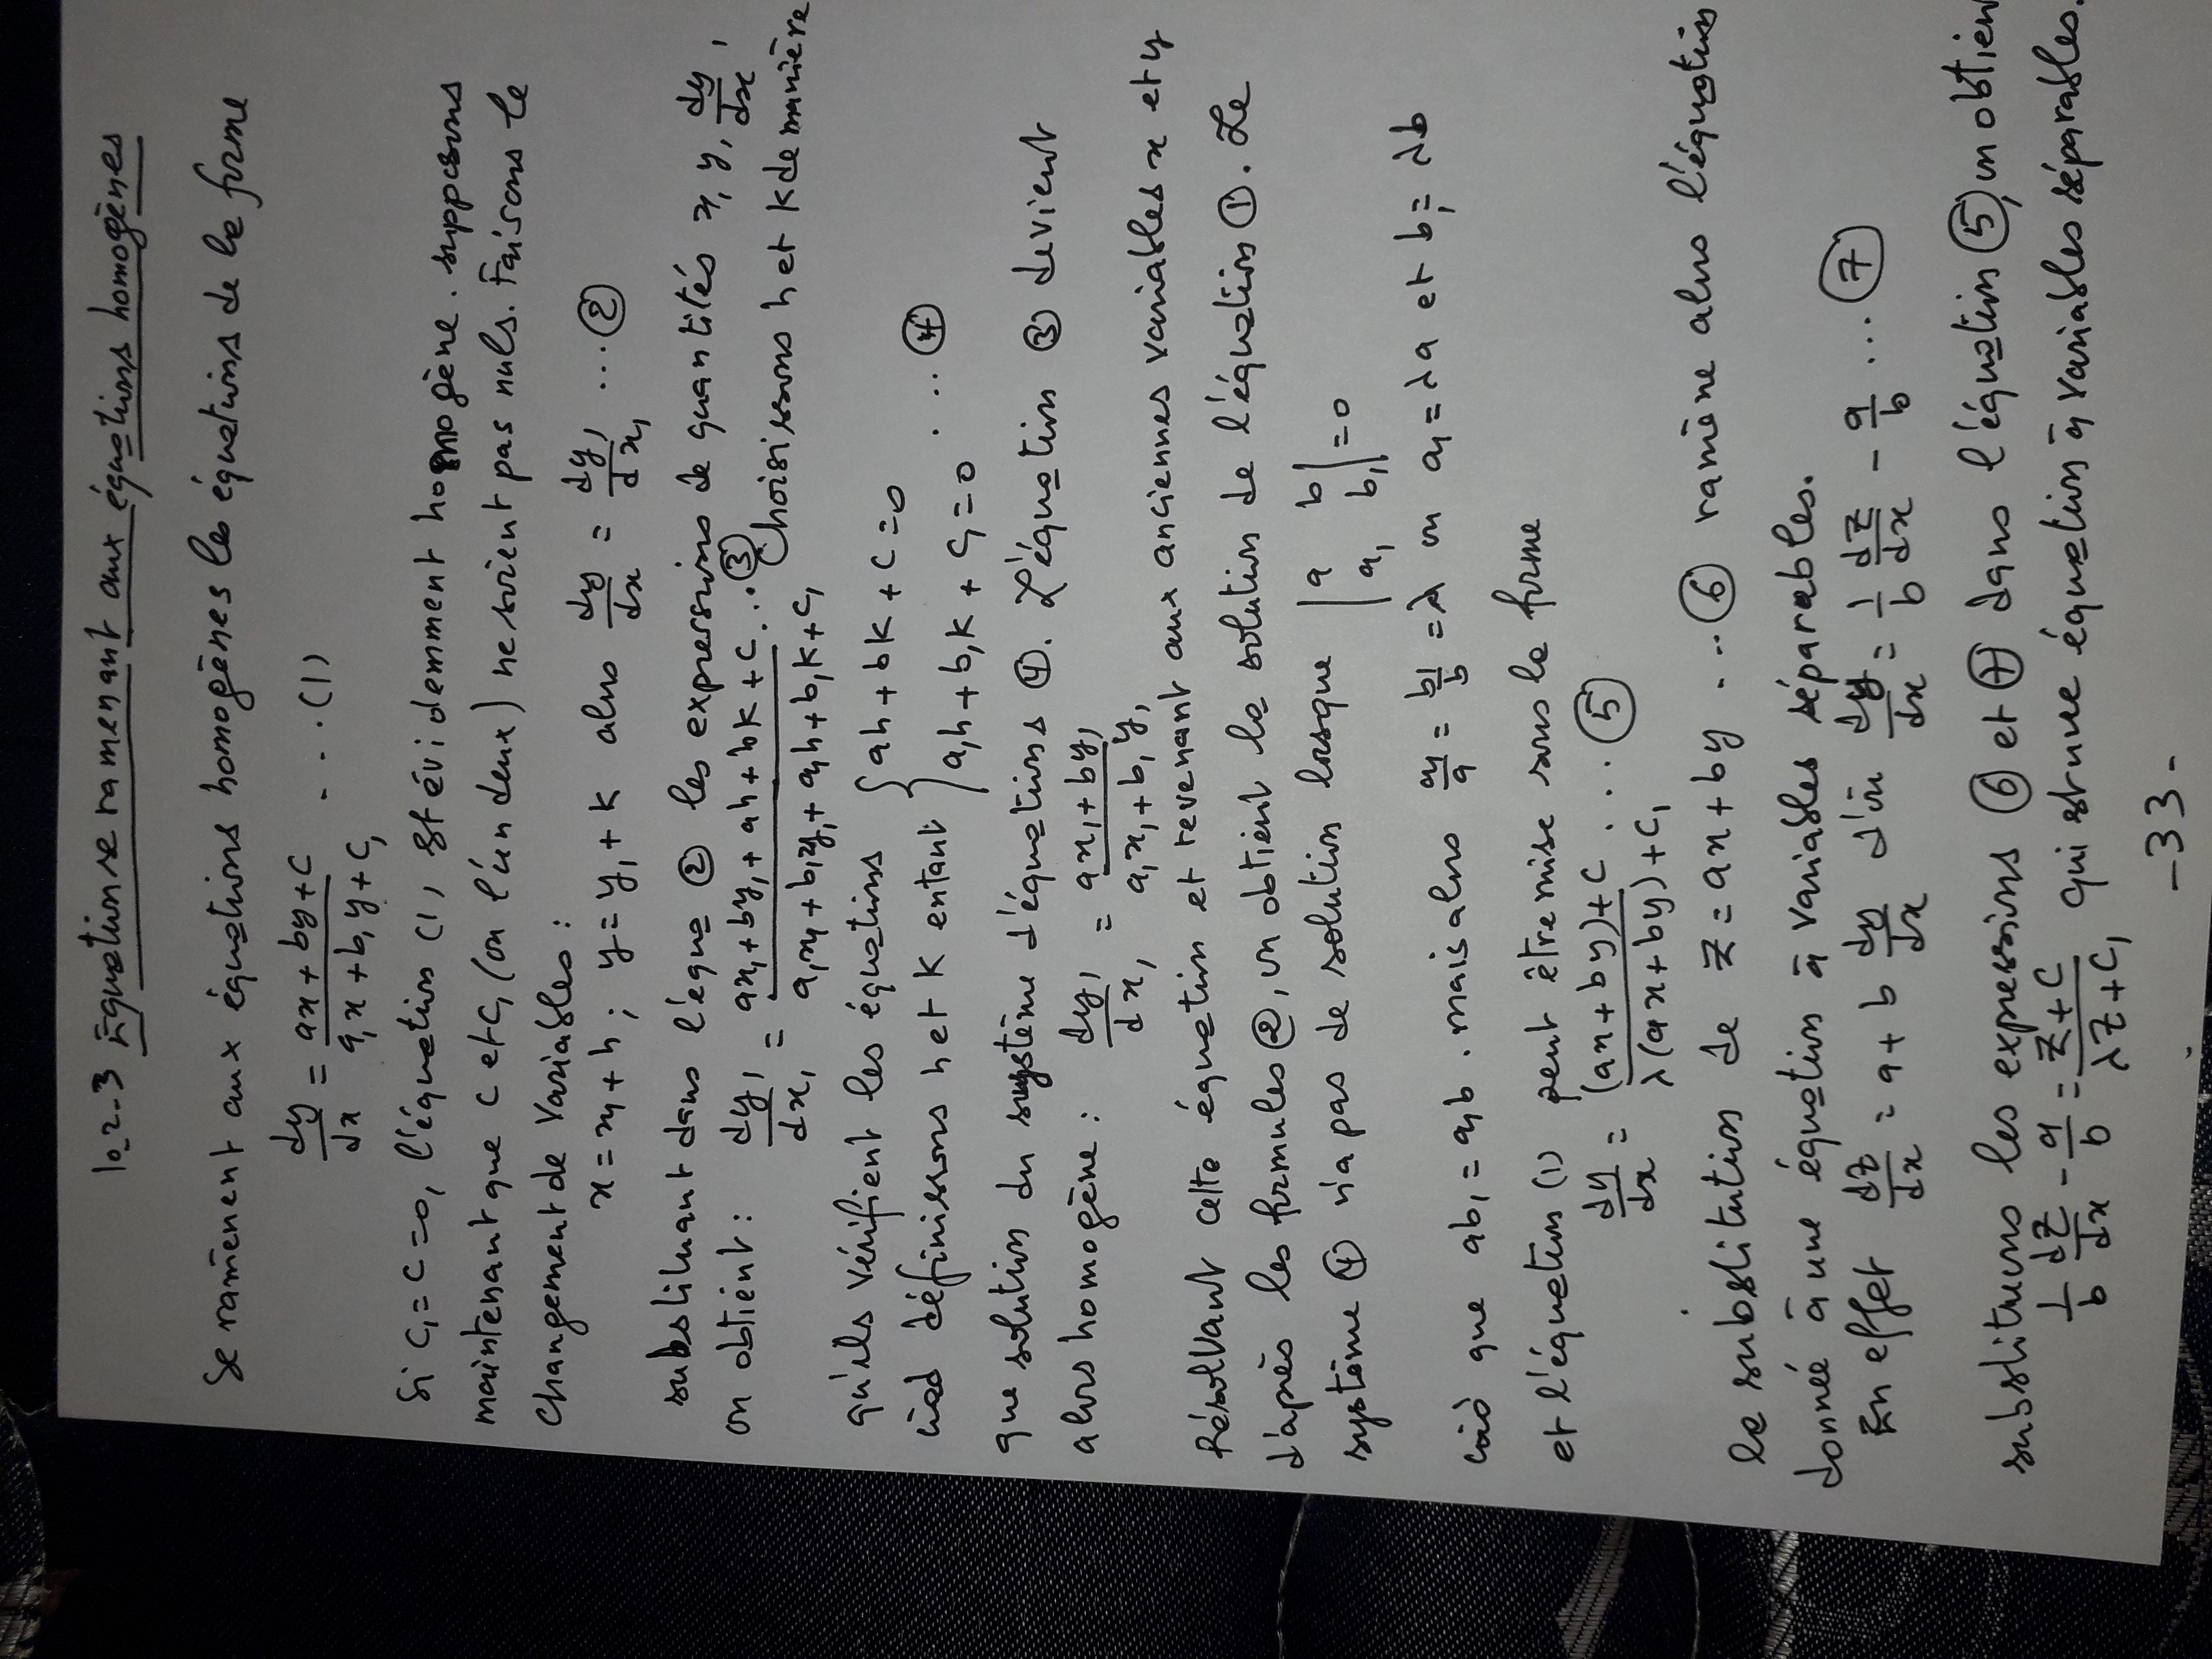 10-2-3 Equations ramenant aux équations homogènes
Se ramènent aux équations homogènes les équations de la forme
dy/dx = (ax + by + c)/(a₁x + b₁y + c₁) - - . (1)
Si c₁ = c = 0, l'équation (1), est évidemment homogène. supposons
maintenant que c et c₁ (ou l'un deux) ne soient pas nuls. Faisons le
changement de variables :
x = x₁ + h ; y = y₁ + k alors dy/dx = dy₁/dx₁ ... ②
substituant dans l'équa ② les expressions de quantités x, y, dy/dx,
on obtient : dy₁/dx₁ = (ax₁ + by₁ + ah + bk + c)/(a₁x₁ + b₁y₁ + a₁h + b₁k + c₁ ...③ Choisissons h et k de manière
qu'ils vérifient les équations { ah + bk + c = 0
càd définissons h et k entant { a₁h + b₁k + c₁ = 0 . ... ④
que solution du système d'équations ④. L'équation ③ devient
alors homogène : dy₁/dx₁ = (ax₁ + by₁)/(a₁x₁ + b₁y₁)
Résolvant cette équation et revenant aux anciennes variables x et y
d'après les formules ②, on obtient la solution de l'équation ①. Le
système ④ n'a pas de solution lorsque |a b; a₁ b₁| = 0
càd que ab₁ = a₁b . mais alors a₁/a = b₁/b = λ ou a₁ = λa et b₁ = λb
et l'équation (1) peut être mise sous la forme
dy/dx = ((ax + by) + c)/(λ(ax + by) + c₁) . . . ⑤
la substitution de z = ax + by - .. ⑥ ramène alors l'équation
donnée à une équation à variables séparables.
En effet dz/dx = a + b dy/dx d'où dy/dx = 1/b dz/dx - a/b ... ⑦
substituons les expressions ⑥ et ⑦ dans l'équation ⑤, on obtien
1/b dz/dx - a/b = (z + c)/(λz + c₁) qui est une équation à variables séparables.
- 33 -